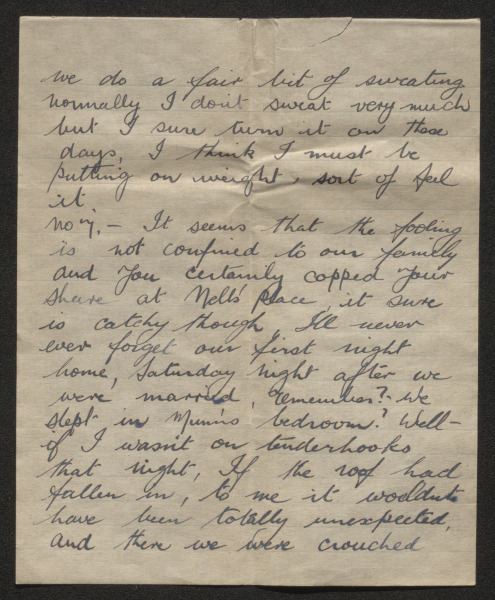 we do a fair bit of sweating
normally I don't sweat very much
but I sure turn it on these
days, I think I must be
putting on weight, sort of feel
it.
No 7, — It seems that the fooling
is not confined to our family
and you certainly copped your
share at Nell's place, it sure
is catchy though, I'll never
ever forget our first night
home, Saturday night after we
were married, remember?- We
slept in Mum's bedroom? Well-
if I wasn't on tenderhooks
that night, If the roof had
fallen in, to me it wouldn't
have been totally unexpected,
and there we were crouched